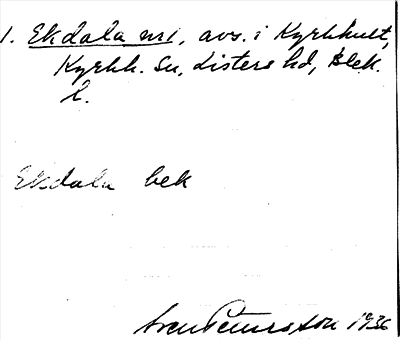 1. Ekdala nr1, avs. i Kyrkhult,
Kyrkh. Sn, Listers hd, Blek.
l.
Ekdala bek
Sven Petersson 1936